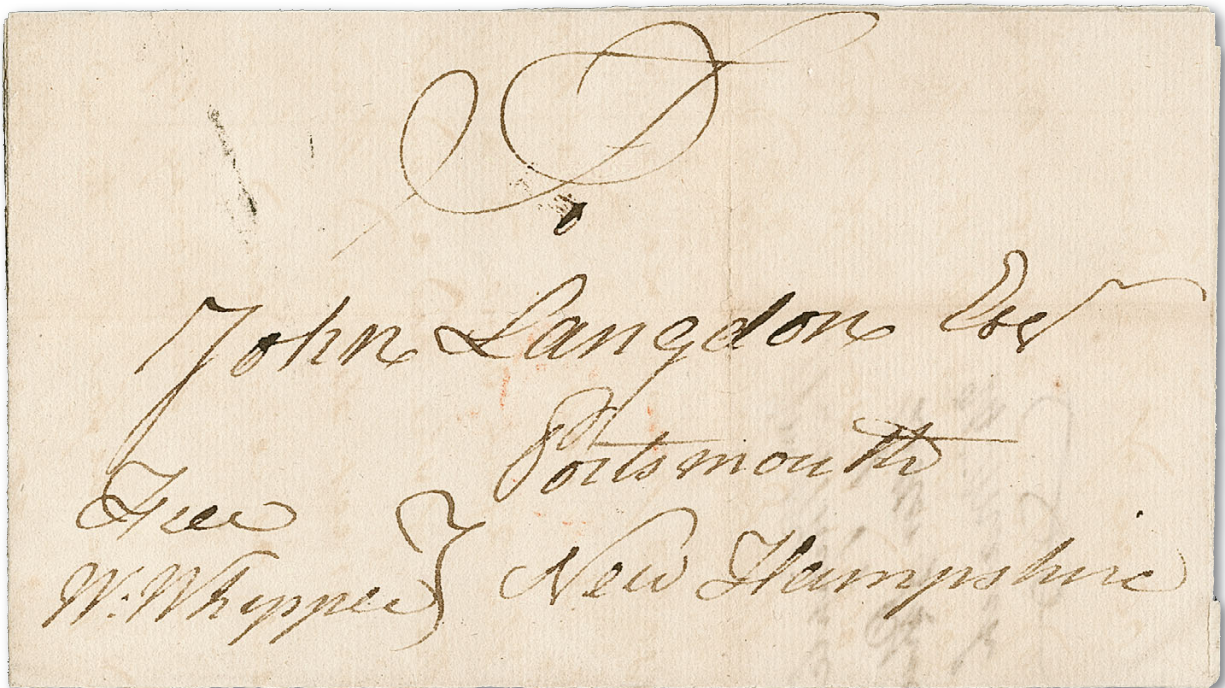 John Langdon Esqr
Portsmouth
Free
W: Whipple } New Hampshire